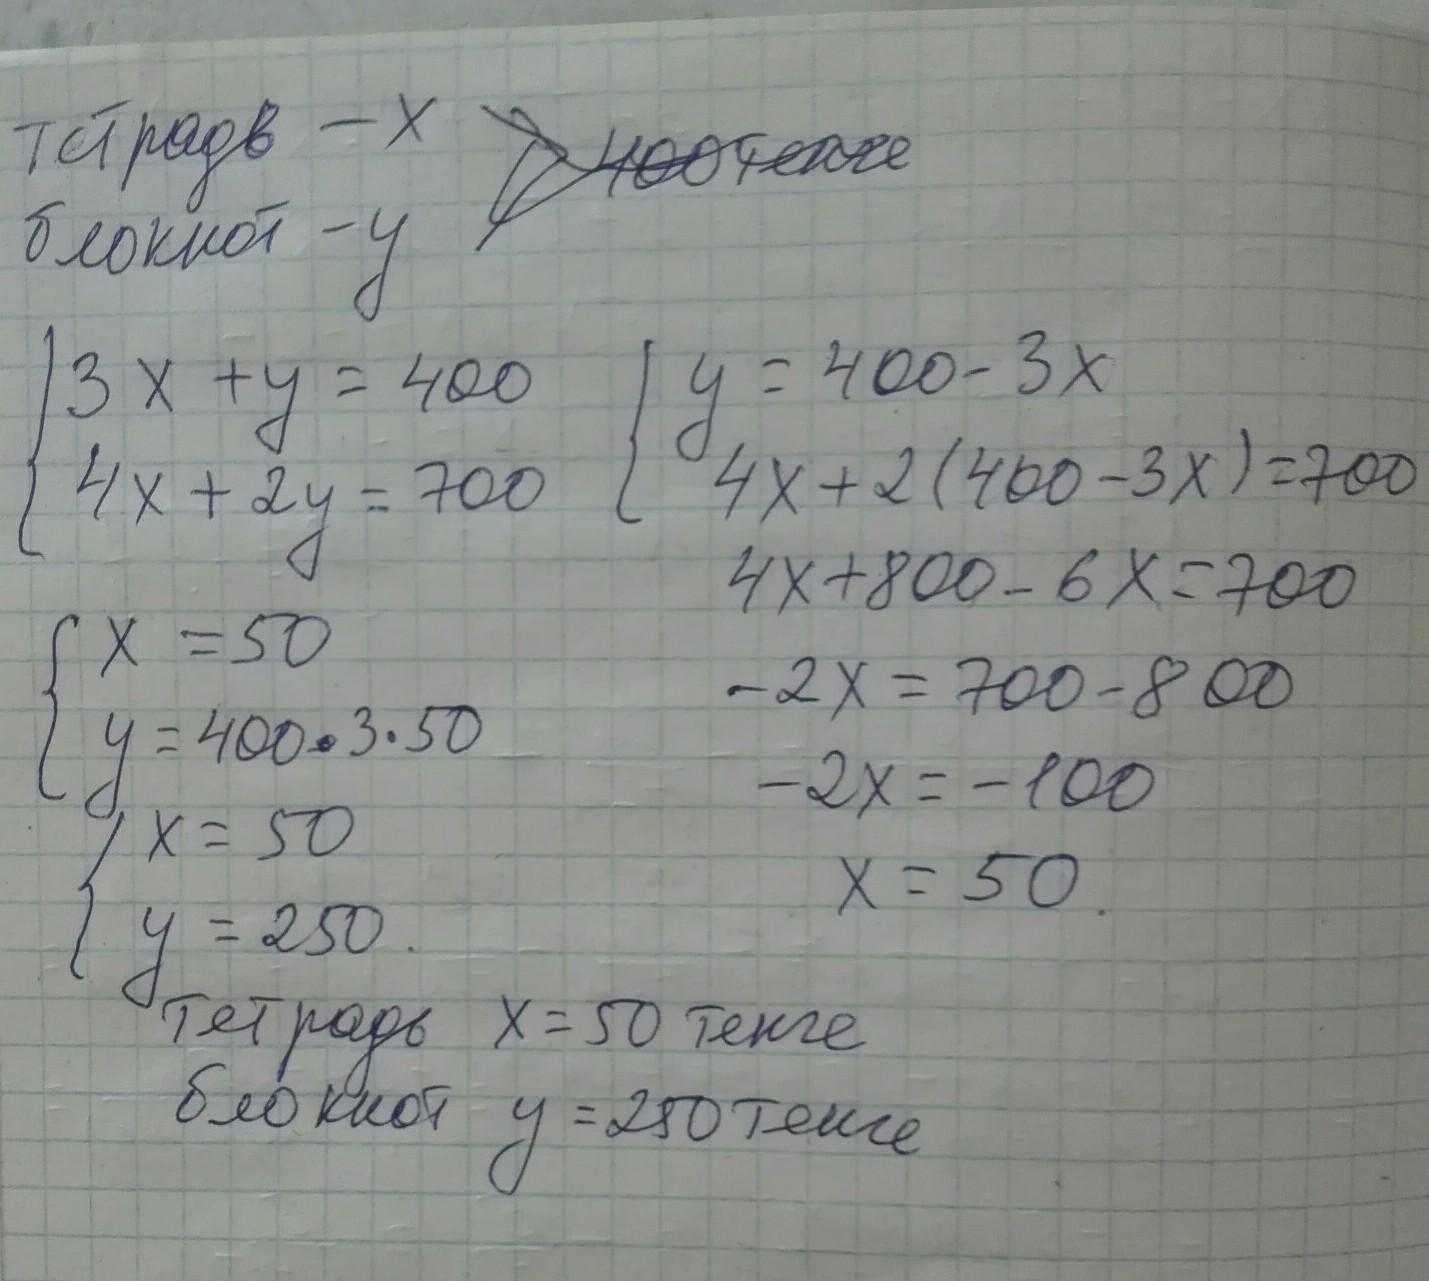 тетрадь – x
400 тенге
блокнот – y
3x + y = 400
4x + 2y = 700
y = 400 - 3x
4x + 2(400 - 3x) = 700
4x + 800 - 6x = 700
-2x = 700 - 800
-2x = -100
x = 50.
x = 50
y = 400 • 3 · 50
x = 50
y = 250.
Тетрадь x = 50 тенге
блокнот y = 250 тенге